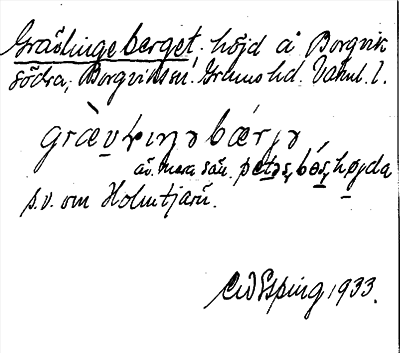 Gräslingeberget. höjd å Borgvik
södra, Borgviks sn. Grums hd. Värml. l.
græv̱ɽiŋə bárjə
äv. mera sän. petəs, bo̱s, hø̱jda
s.v. om Holmtjärn.
CW Esping 1933.